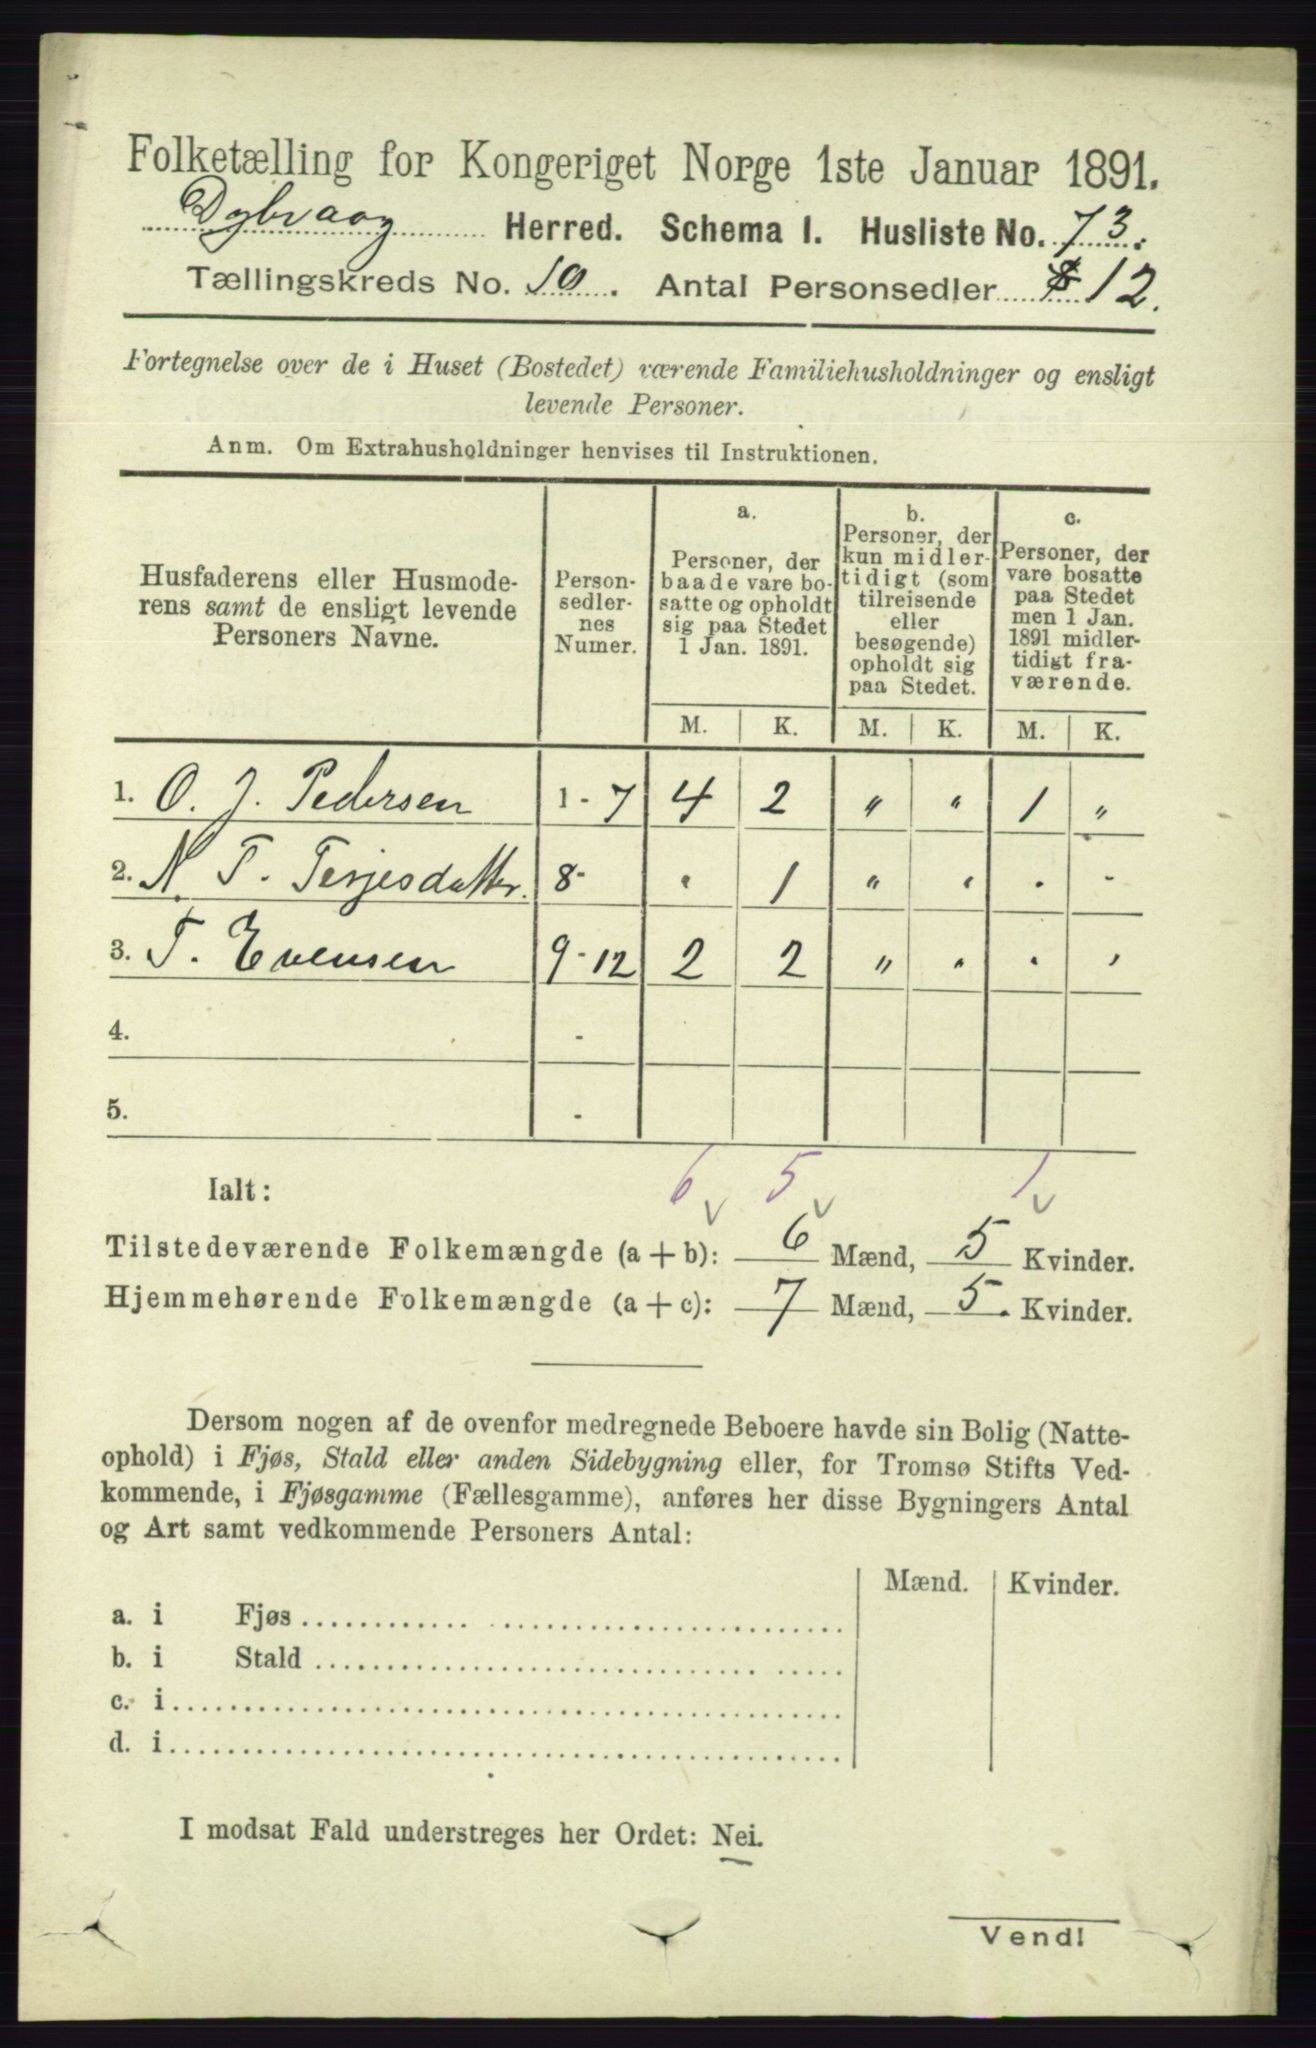 Folketælling for Kongeriget Norge 1ste Januar 1891.
Dybvaag Herred. Schema I. Husliste No. 73.
Tællingskreds No. 10. Antal Personsedler 12.
Fortegnelse over de i Huset (Bostedet) værende Familiehusholdninger og ensligt
levende Personer.
Anm. Om Extrahusholdninger henvises til Instruktionen.
Husfaderens eller Husmode-
rens samt de ensligt levende
Personers Navne.
Person-
sedler-
nes
Numer.
a.
Personer, der
baade vare bo-
satte og opholdt
sig paa Stedet
1 Jan. 1891.
b.
Personer, der
kun midler-
tidigt (som
tilreisende
eller
besøgende)
opholdt sig
paa Stedet.
c.
Personer, der
vare bosatte
paa Stedet
men 1 Jan.
1891 midler-
tidigt fra-
værende.
M. K. M. K. M. K.
1. O. J. Pedersen 1 - 7 4 2 " " 1 "
2. N. T. Terjesdatter. 8- " 1 " " " "
3. T. Evensen 9-12 2 2 " " " "
4. -
5. -
6 5 1
Ialt:
Tilstedeværende Folkemængde (a + b): 6 Mænd, 5 Kvinder.
Hjemmehørende Folkemængde (a + c): 7 Mænd, 5. Kvinder.
Dersom nogen af de ovenfor medregnede Beboere havde sin Bolig (Natte-
ophold) i Fjøs, Stald eller anden Sidebygning eller, for Tromsø Stifts Ved-
kommende, i Fjøsgamme (Fællesgamme), anføres her disse Bygningers Antal
og Art samt vedkommende Personers Antal:
Mænd. Kvinder.
a. i Fjøs
b. i Stald
c. i
d. i
I modsat Fald understreges her Ordet: Nei.
Vend!